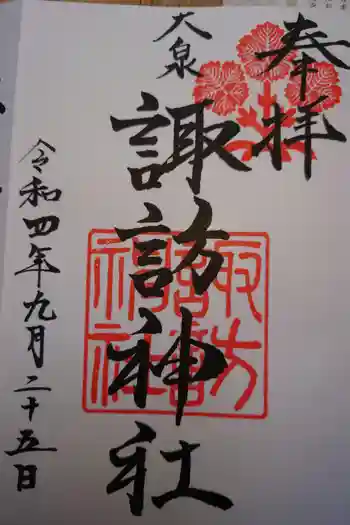 奉拝
大泉
諏訪神社
令和四年九月二十五日